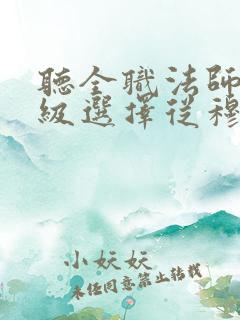 聽全職法師
級選擇從穆
小妖妖
未经同意禁止转载